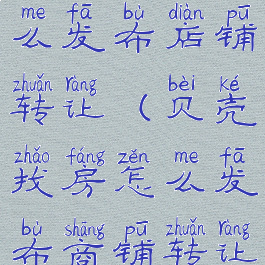 me fā bù diàn pū
么发布店铺
zhuǎn ràng bèi ké
转让（贝壳
zhǎo fáng zěn me fā
找房怎么发
bù shāng pū zhuǎn ràng
布商铺转让